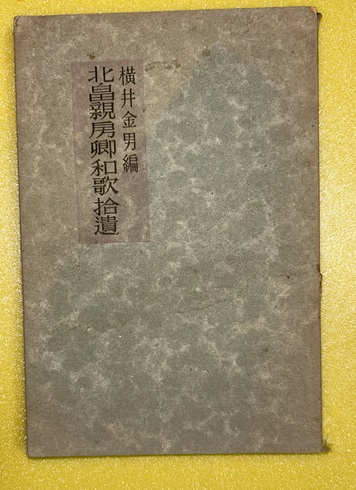 横井金男編
北畠親房卿和歌拾遺